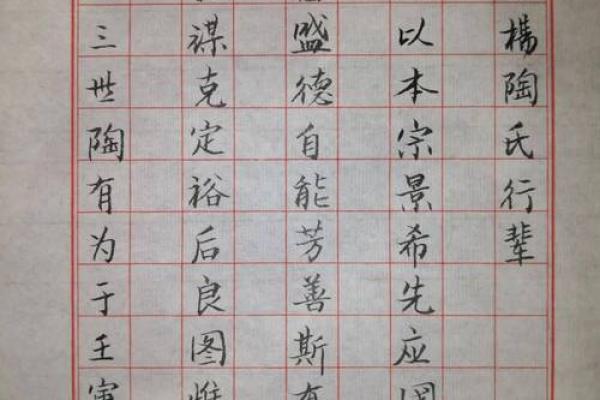 楊陶氏行辈
以本宗景希先应
盛德自能芳善斯有
谋克定裕后良图惟
三世陶有为于壬寅